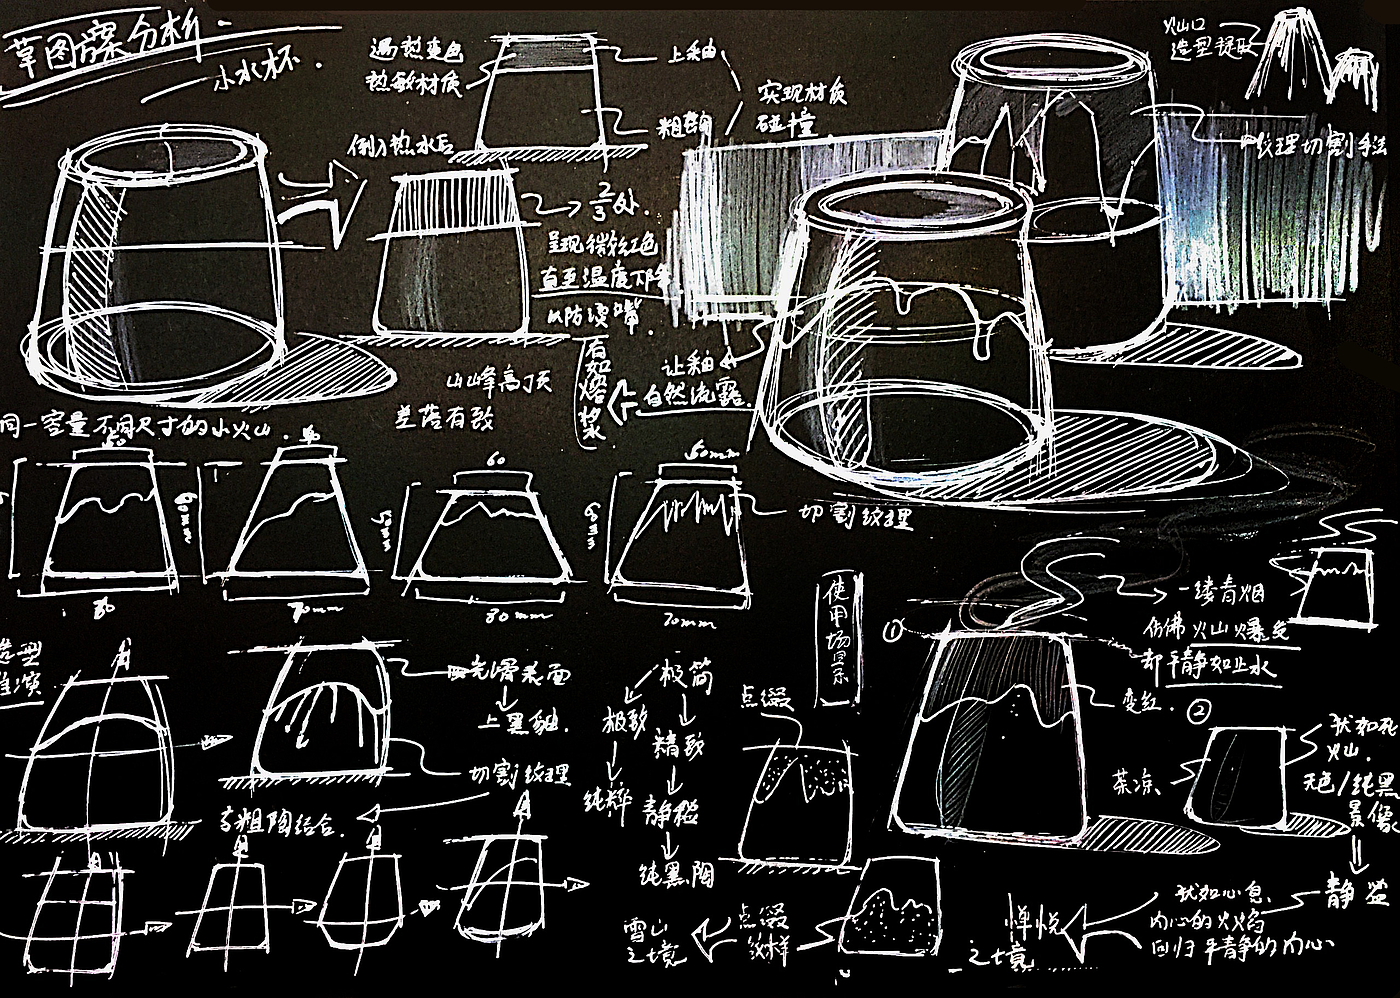 草图方案分析-
小水杯.
遇热变色
热敏材质
上釉
粗陶
实现材质
碰撞
火山口
造型提取
纹理切割手法
倒入热水后
2/3处.
呈现微红色
直至温度下降
以防烫嘴.
有如熔浆
让釉
自然流露.
山峰高顶
差落有致
同一容量不同尺寸的小火山.
60
50mm
80
70mm
80mm
70mm
60mm
60mm
切割纹理
使用场景
①
一缕青烟
仿佛火山爆发
却平静如止水
变红.
②
茶凉
犹如死
火山.
无色/纯黑
景像
静谧
造型
推演
光滑表面
上黑釉.
切割纹理
与粗陶结合.
极简
极致
精致
纯粹
静谧
纯黑陶
点缀
点缀
纹样
雪山
之境
禅悦
之境
犹如心息
内心的火焰
回归平静的内心